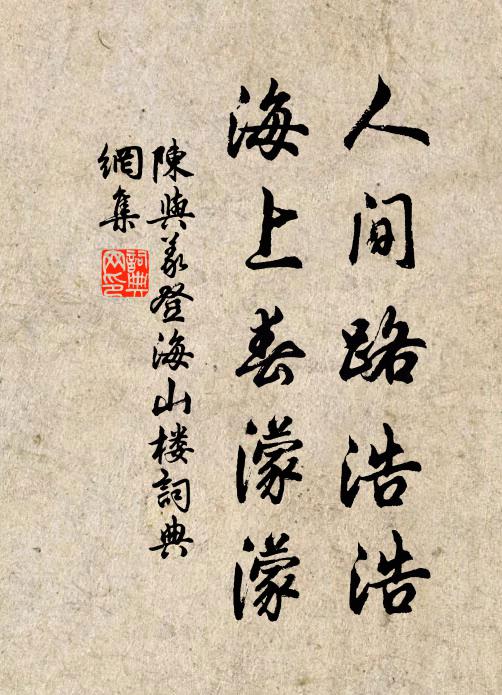 人间路浩浩
海上春濛濛
陳與義登海山楼詞典
網集
詞典
网印